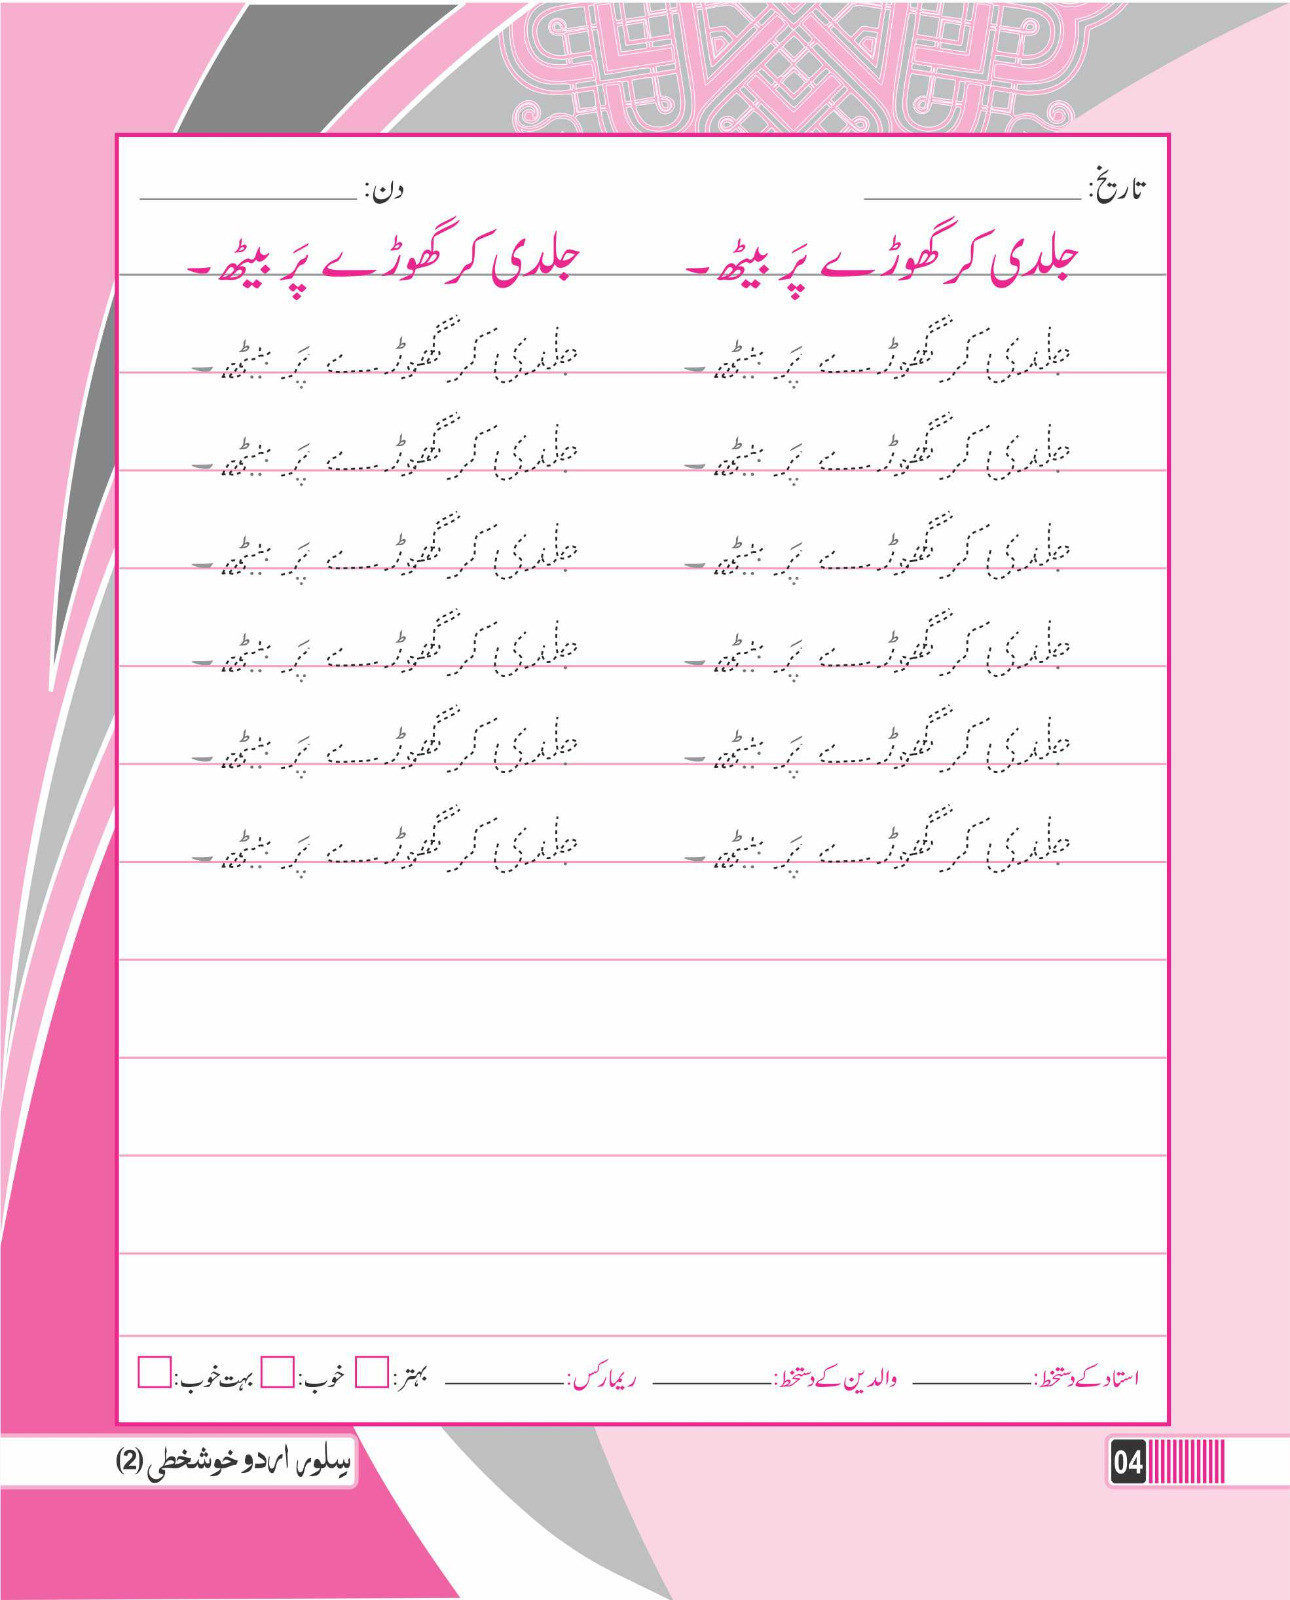 تاریخ: ____________ دن: ____________
جلدی کر گھوڑے پَر بیٹھ۔ جلدی کر گھوڑے پَر بیٹھ۔
جلدی کر گھوڑے پَر بیٹھ۔ جلدی کر گھوڑے پَر بیٹھ۔
جلدی کر گھوڑے پَر بیٹھ۔ جلدی کر گھوڑے پَر بیٹھ۔
جلدی کر گھوڑے پَر بیٹھ۔ جلدی کر گھوڑے پَر بیٹھ۔
جلدی کر گھوڑے پَر بیٹھ۔ جلدی کر گھوڑے پَر بیٹھ۔
جلدی کر گھوڑے پَر بیٹھ۔ جلدی کر گھوڑے پَر بیٹھ۔
جلدی کر گھوڑے پَر بیٹھ۔ جلدی کر گھوڑے پَر بیٹھ۔
استاد کے دستخط: ________ والدین کے دستخط: ________ ریمارکس: ________ بہتر: خوب: بہت خوب:
04 سِلور اردو خوشخطی (2)